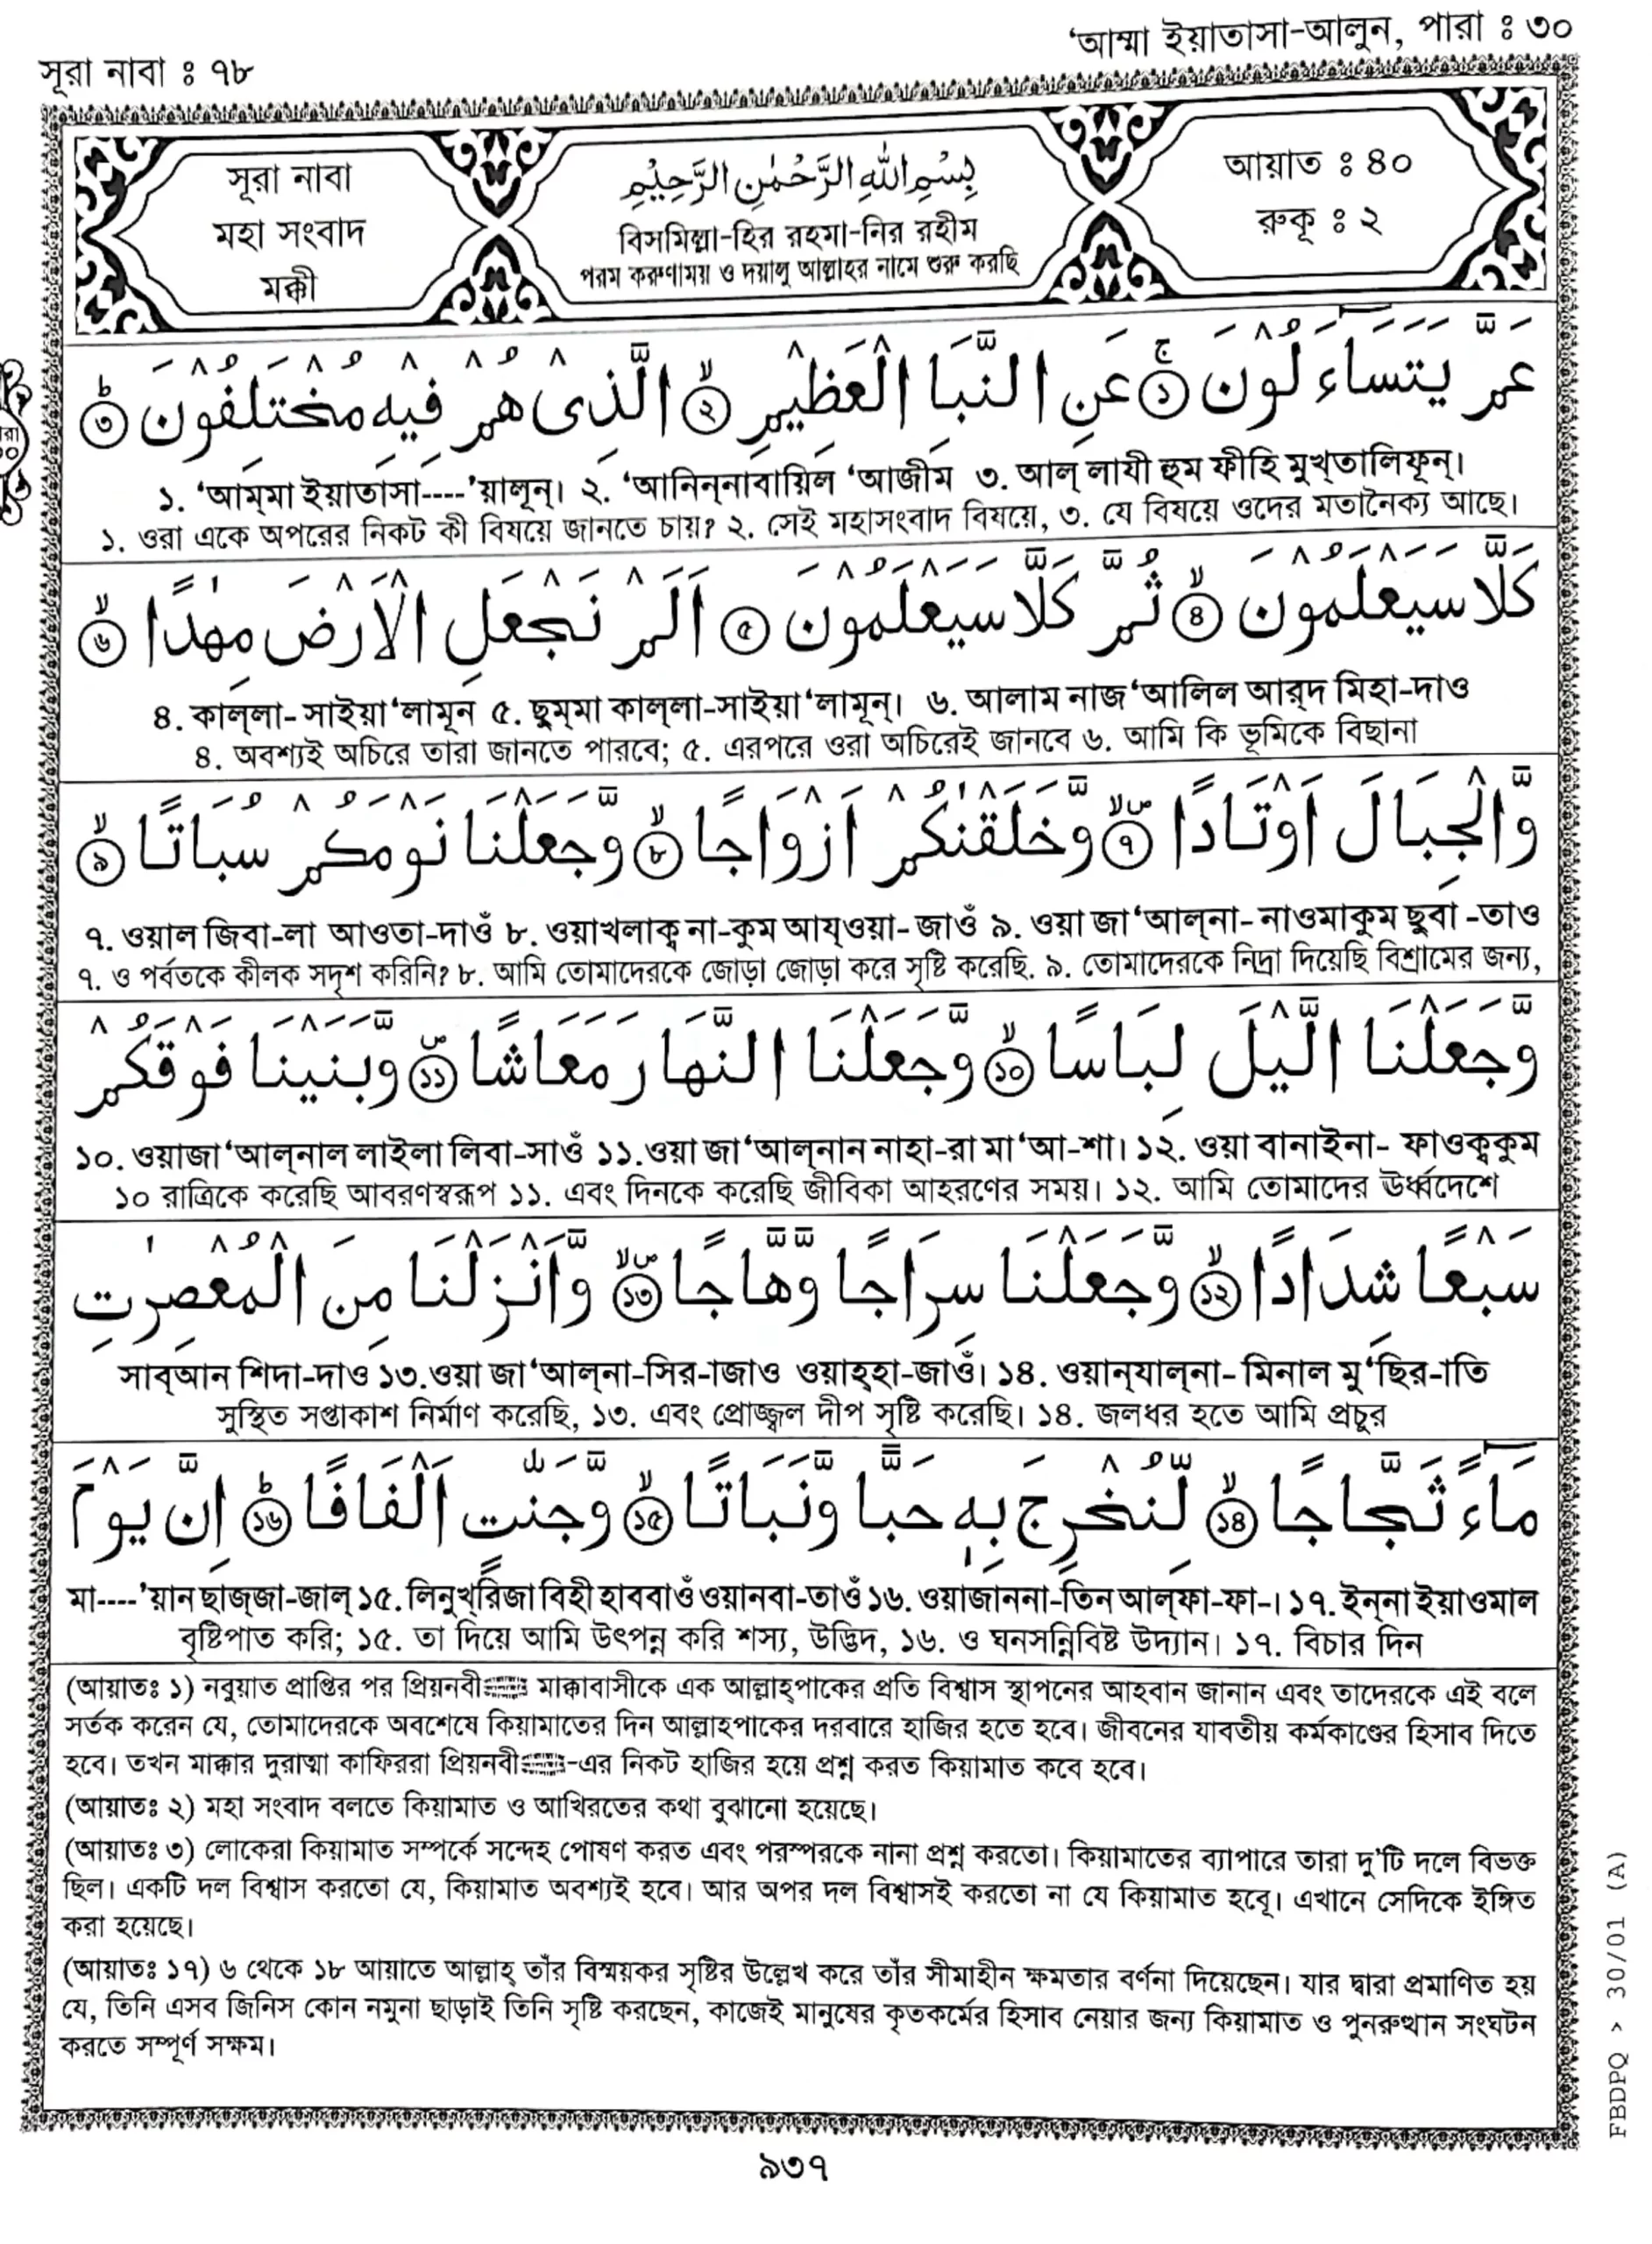 ‘আম্মা ইয়াতাসা-আলুন, পারা ঃ ৩০
সূরা নাবা ঃ ৭৮
সূরা নাবা
মহা সংবাদ
মক্কী
بِسْمِ اللّٰهِ الرَّحْمٰنِ الرَّحِيْمِ
বিসমিল্লা-হির রহমা-নির রহীম
পরম করুণাময় ও দয়ালু আল্লাহর নামে শুরু করছি
আয়াত ঃ ৪০
রুকূ ঃ ২
عَمَّ يَتَسَاءَلُوْنَ ۚ﴿১﴾ عَنِ النَّبَاِ الْعَظِيْمِ ۙ﴿২﴾ الَّذِىْ هُمْ فِيْهِ مُخْتَلِفُوْنَ ؕ﴿৩﴾
১. ‘আম্‌মা ইয়াতাসা----’য়ালূন্‌। ২. ‘আনিন্‌নাবায়িল ‘আজীম ৩. আল্‌ লাযী হুম ফীহি মুখ্‌তালিফূন্‌।
১. ওরা একে অপরের নিকট কী বিষয়ে জানতে চায়? ২. সেই মহাসংবাদ বিষয়ে, ৩. যে বিষয়ে ওদের মতানৈক্য আছে।
كَلَّا سَيَعْلَمُوْنَ ۙ﴿৪﴾ ثُمَّ كَلَّا سَيَعْلَمُوْنَ ﴿৫﴾ اَلَمْ نَجْعَلِ الْاَرْضَ مِهٰدًا ۙ﴿৬﴾
৪. কাল্‌লা- সাইয়া‘লামূন ৫. ছুম্‌মা কাল্‌লা-সাইয়া‘লামূন্‌। ৬. আলাম নাজ‘আলিল আর্‌দ মিহা-দাও
৪. অবশ্যই অচিরে তারা জানতে পারবে; ৫. এরপরে ওরা অচিরেই জানবে ৬. আমি কি ভূমিকে বিছানা
وَّالْجِبَالَ اَوْتَادًا ۪ۙ﴿৭﴾ وَّخَلَقْنٰكُمْ اَزْوَاجًا ۙ﴿৮﴾ وَّجَعَلْنَا نَوْمَكُمْ سُبَاتًا ۙ﴿৯﴾
৭. ওয়াল জিবা-লা আওতা-দাওঁ ৮. ওয়াখলাক্ব না-কুম আয্‌ওয়া- জাওঁ ৯. ওয়া জা‘আল্‌না- নাওমাকুম ছুবা -তাও
৭. ও পর্বতকে কীলক সদৃশ করিনি? ৮. আমি তোমাদেরকে জোড়া জোড়া করে সৃষ্টি করেছি. ৯. তোমাদেরকে নিদ্রা দিয়েছি বিশ্রামের জন্য,
وَّجَعَلْنَا الَّيْلَ لِبَاسًا ۙ﴿১০﴾ وَّجَعَلْنَا النَّهَارَ مَعَاشًا ۪﴿১১﴾ وَّبَنَيْنَا فَوْقَكُمْ
১০. ওয়াজা‘আল্‌নাল লাইলা লিবা-সাওঁ ১১.ওয়া জা‘আল্‌নান নাহা-রা মা‘আ-শা। ১২. ওয়া বানাইনা- ফাওক্বকুম
১০ রাত্রিকে করেছি আবরণস্বরূপ ১১. এবং দিনকে করেছি জীবিকা আহরণের সময়। ১২. আমি তোমাদের ঊর্ধ্বদেশে
سَبْعًا شِدَادًا ۙ﴿১২﴾ وَّجَعَلْنَا سِرَاجًا وَّهَّاجًا ۪ۙ﴿১৩﴾ وَّاَنْزَلْنَا مِنَ الْمُعْصِرٰتِ
সাব্‌আন শিদা-দাও ১৩.ওয়া জা‘আল্‌না-সির-াজাও ওয়াহ্‌হা-জাওঁ। ১৪. ওয়ান্‌যাল্‌না- মিনাল মু‘ছির-াতি
সুস্থিত সপ্তাকাশ নির্মাণ করেছি, ১৩. এবং প্রোজ্জ্বল দীপ সৃষ্টি করেছি। ১৪. জলধর হতে আমি প্রচুর
مَآءً ثَجَّاجًا ۙ﴿১৪﴾ لِّنُخْرِجَ بِهٖ حَبًّا وَّنَبَاتًا ۙ﴿১৫﴾ وَّجَنّٰتٍ اَلْفَافًا ؕ﴿১৬﴾ اِنَّ يَوْمَ
মা----’য়ান ছাজ্‌জা-জাল্‌ ১৫. লিনুখ্‌রিজা বিহী হাববাওঁ ওয়ানবা-তাওঁ ১৬. ওয়াজাননা-তিন আল্‌ফা-ফা-। ১৭. ইন্‌না ইয়াওমাল
বৃষ্টিপাত করি; ১৫. তা দিয়ে আমি উৎপন্ন করি শস্য, উদ্ভিদ, ১৬. ও ঘনসন্নিবিষ্ট উদ্যান। ১৭. বিচার দিন
(আয়াতঃ ১) নবুয়াত প্রাপ্তির পর প্রিয়নবীﷺ মাক্কাবাসীকে এক আল্লাহ্‌পাকের প্রতি বিশ্বাস স্থাপনের আহবান জানান এবং তাদেরকে এই বলে
সর্তক করেন যে, তোমাদেরকে অবশেষে কিয়ামাতের দিন আল্লাহপাকের দরবারে হাজির হতে হবে। জীবনের যাবতীয় কর্মকাণ্ডের হিসাব দিতে
হবে। তখন মাক্কার দুরাত্মা কাফিররা প্রিয়নবীﷺ-এর নিকট হাজির হয়ে প্রশ্ন করত কিয়ামাত কবে হবে।
(আয়াতঃ ২) মহা সংবাদ বলতে কিয়ামাত ও আখিরতের কথা বুঝানো হয়েছে।
(আয়াতঃ ৩) লোকেরা কিয়ামাত সম্পর্কে সন্দেহ পোষণ করত এবং পরস্পরকে নানা প্রশ্ন করতো। কিয়ামাতের ব্যাপারে তারা দু’টি দলে বিভক্ত
ছিল। একটি দল বিশ্বাস করতো যে, কিয়ামাত অবশ্যই হবে। আর অপর দল বিশ্বাসই করতো না যে কিয়ামাত হবেূ। এখানে সেদিকে ইঙ্গিত
করা হয়েছে।
(আয়াতঃ ১৭) ৬ থেকে ১৮ আয়াতে আল্লাহ্‌ তাঁর বিস্ময়কর সৃষ্টির উল্লেখ করে তাঁর সীমাহীন ক্ষমতার বর্ণনা দিয়েছেন। যার দ্বারা প্রমাণিত হয়
যে, তিনি এসব জিনিস কোন নমুনা ছাড়াই তিনি সৃষ্টি করছেন, কাজেই মানুষের কৃতকর্মের হিসাব নেয়ার জন্য কিয়ামাত ও পুনরুত্থান সংঘটন
করতে সম্পূর্ণ সক্ষম।
৯৩৭
FBDPQ > 30/01 (A)